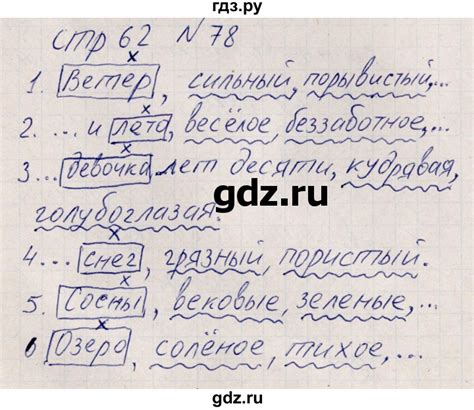 гдз.ру
стр 62 № 78
х
1. Ветер, сильный, порывистый,...
х
2. ... и лето, весёлое, беззаботное,...
х
3... девочка лет десяти, кудрявая,
gdz.ru
голубоглазая.
х
4... снег, грязный, пористый.
х
5. Сосны, вековые, зеленые,...
х
6 Озеро, солёное, тихое,...
gdz.ru